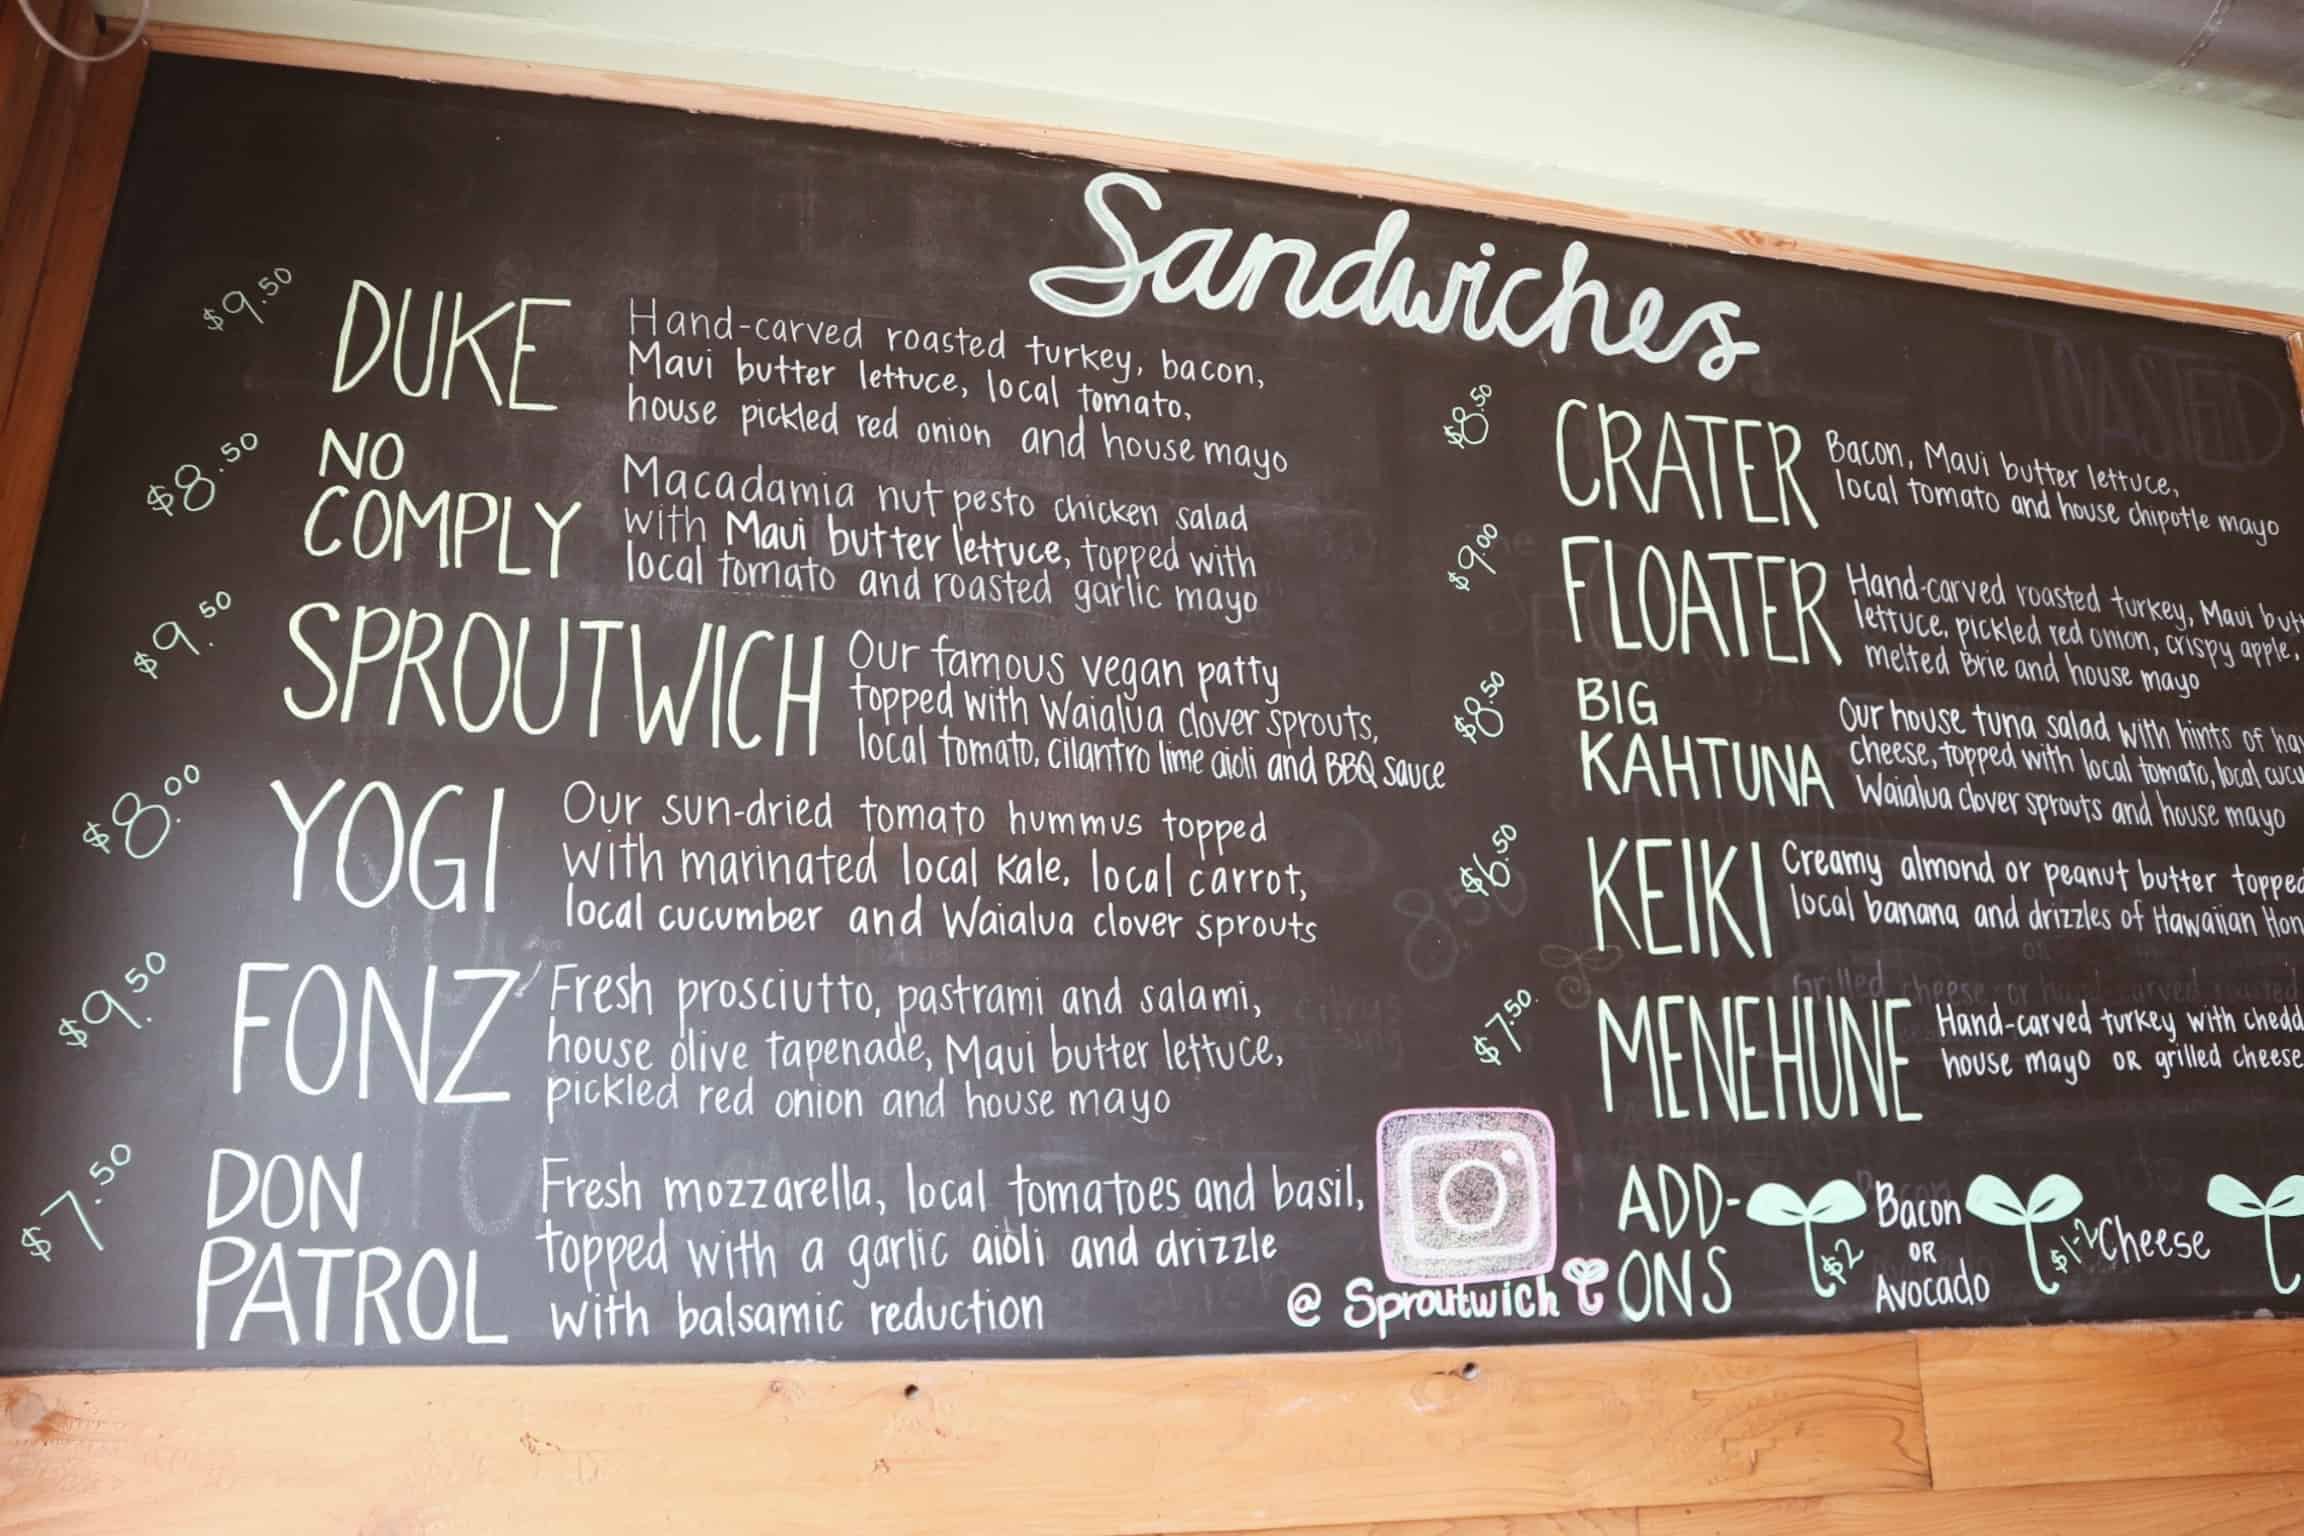 Sandwiches
$9.50
DUKE
Hand-carved roasted turkey, bacon,
Maui butter lettuce, local tomato,
house pickled red onion and house mayo
$8.50
NO
COMPLY
Macadamia nut pesto chicken salad
with Maui butter lettuce, topped with
local tomato and roasted garlic mayo
$9.50
SPROUTWICH
Our famous vegan patty
topped with Waialua clover sprouts,
local tomato, cilantro lime aioli and BBQ sauce
$8.00
YOGI
Our sun-dried tomato hummus topped
with marinated local kale, local carrot,
local cucumber and Waialua clover sprouts
$9.50
FONZ
Fresh prosciutto, pastrami and salami,
house olive tapenade, Maui butter lettuce,
pickled red onion and house mayo
$7.50
DON
PATROL
Fresh mozzarella, local tomatoes and basil,
topped with a garlic aioli and drizzle
with balsamic reduction
@ Sproutwich
TOASTED
$8.50
CRATER
Bacon, Maui butter lettuce,
local tomato and house chipotle mayo
$9.00
FLOATER
Hand-carved roasted turkey, Maui butt
lettuce, pickled red onion, crispy apple,
melted Brie and house mayo
$8.50
BIG
KAHTUNA
Our house tuna salad with hints of hav
cheese, topped with local tomato, local cucu
Waialua clover sprouts and house mayo
$6.50
KEIKI
Creamy almond or peanut butter topped
local banana and drizzles of Hawaiian Hon
$7.50
MENEHUNE
Hand-carved turkey with chedd
house mayo OR grilled cheese
ADD-
ONS
$2
Bacon
OR
Avocado
$1-2
Cheese